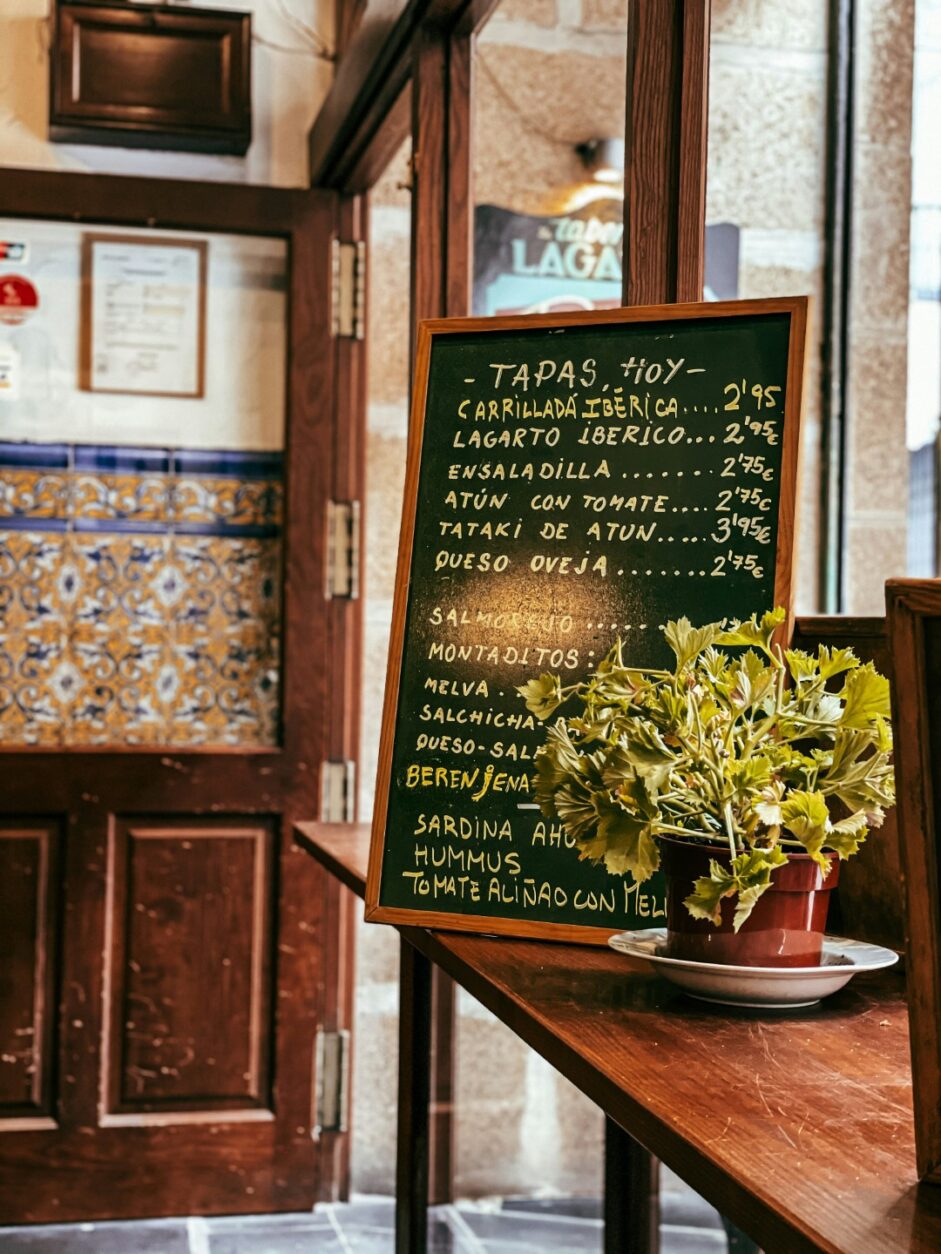 LAGA
- TAPAS, HOY -
CARRILLADA IBÉRICA.... 2'95
LAGARTO IBERICO... 2'95€
ENSALADILLA ....... 2'75€
ATÚN CON TOMATE.... 2'75€
TATAKI DE ATUN..... 3'95€
QUESO OVEJA ....... 2'75€
SALMOREJO .....
MONTADITOS:
MELVA .
SALCHICHA-
QUESO-SAL
BERENJENA
SARDINA AHU
HUMMUS
TOMATE ALIÑAO CON MEL